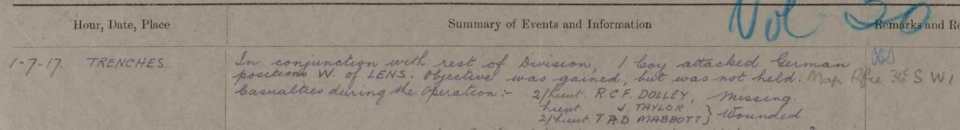 Vol 30
Hour, Date, Place Summary of Events and Information Remarks and Re
1-7-17. TRENCHES. In conjunction with rest of Division, 1 Coy attacked German
positions W. of LENS. Objective was gained, but was not held. Map Rfce 36 S W 1
Casualties during the operation:- 2/Lieut. R.C.F. DOLLEY, Missing.
Lieut J. TAYLOR,
2/Lieut T A D MABBOTT } Wounded